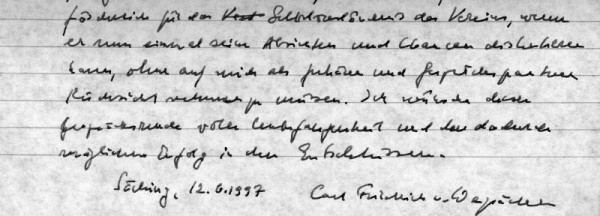 förderlich für das Selbstverständnis des Vereins, wenn
er nun einmal seine Absichten und Chancen diskutieren
kann, ohne auf mich als Zuhörer und Gesprächspartner
Rücksicht nehmen zu müssen. Ich wünsche dieser
Gesprächsrunde volle Unbefangenheit und den dadurch
möglichen Erfolg in den Entschlüssen.
Söcking, 12.6.1997 Carl Friedrich v. Weizsäcker